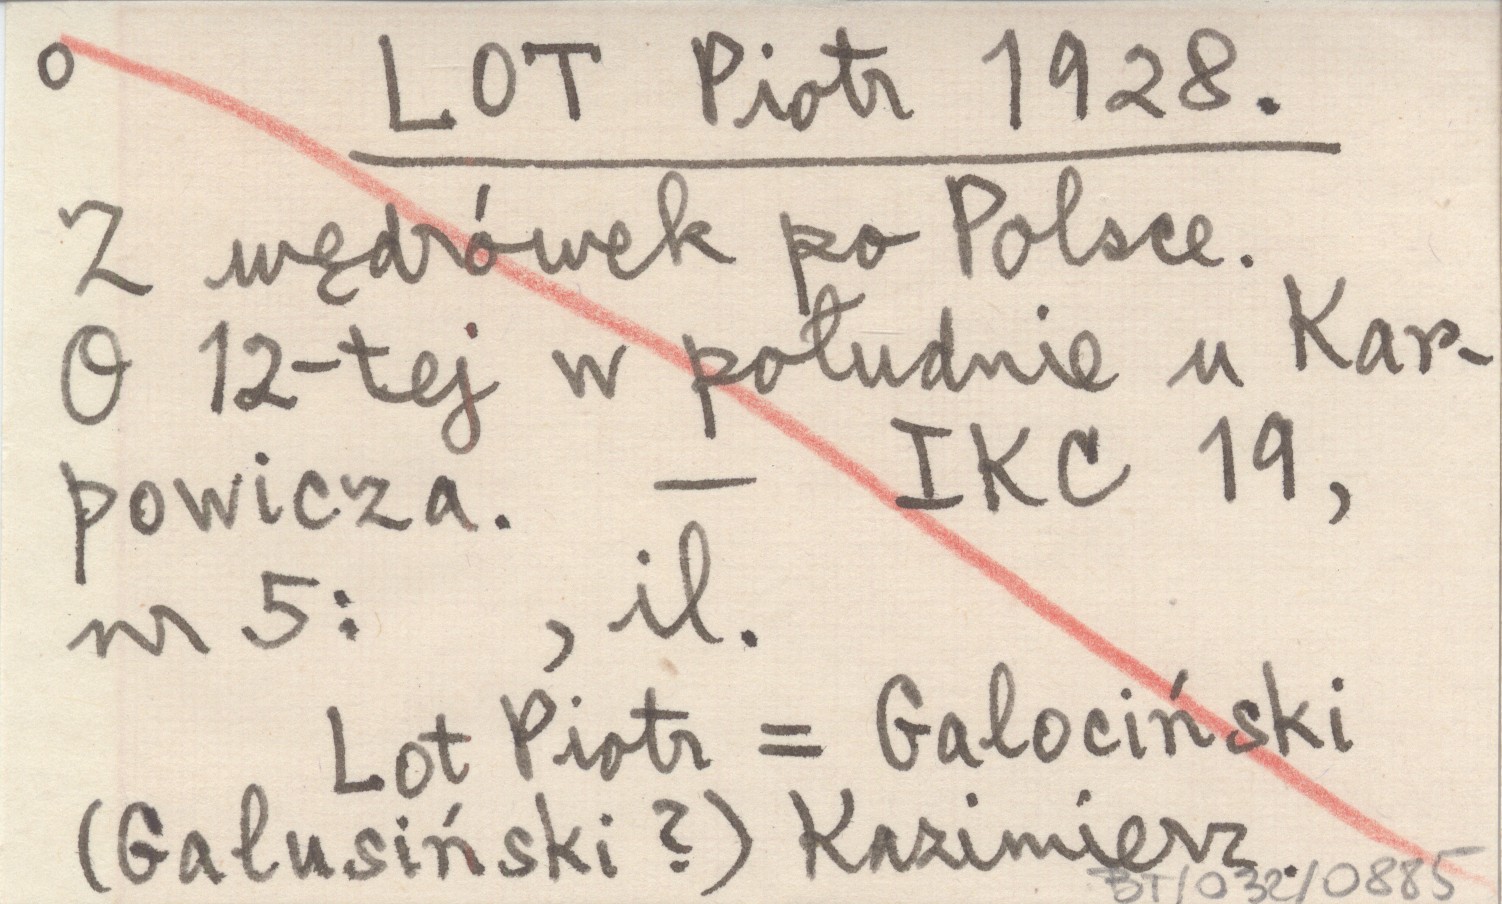 o LOT Piotr 1928.
Z wędrówek po Polsce.
O 12-tej w południe u Kar-
powicza. — IKC 19,
nr 5: , il.
Lot Piotr = Galociński
(Galusiński ?) Kazimierz.
BT/032/0885